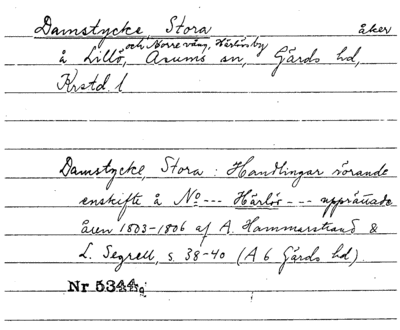 Damstycke, Stora åker
och Norrevång, Härlövsby
å Lillö, Araums sn, Gärds hd,
Krstd. l
Damstycke, Stora : Handlingar rörande
enskifte å No --- Härlöv --- upprättade
åren 1803-1806 af A. Hammarstrand &
L. Segrell, s. 38-40 (A 6 Gärds hd).
Nr 5344a